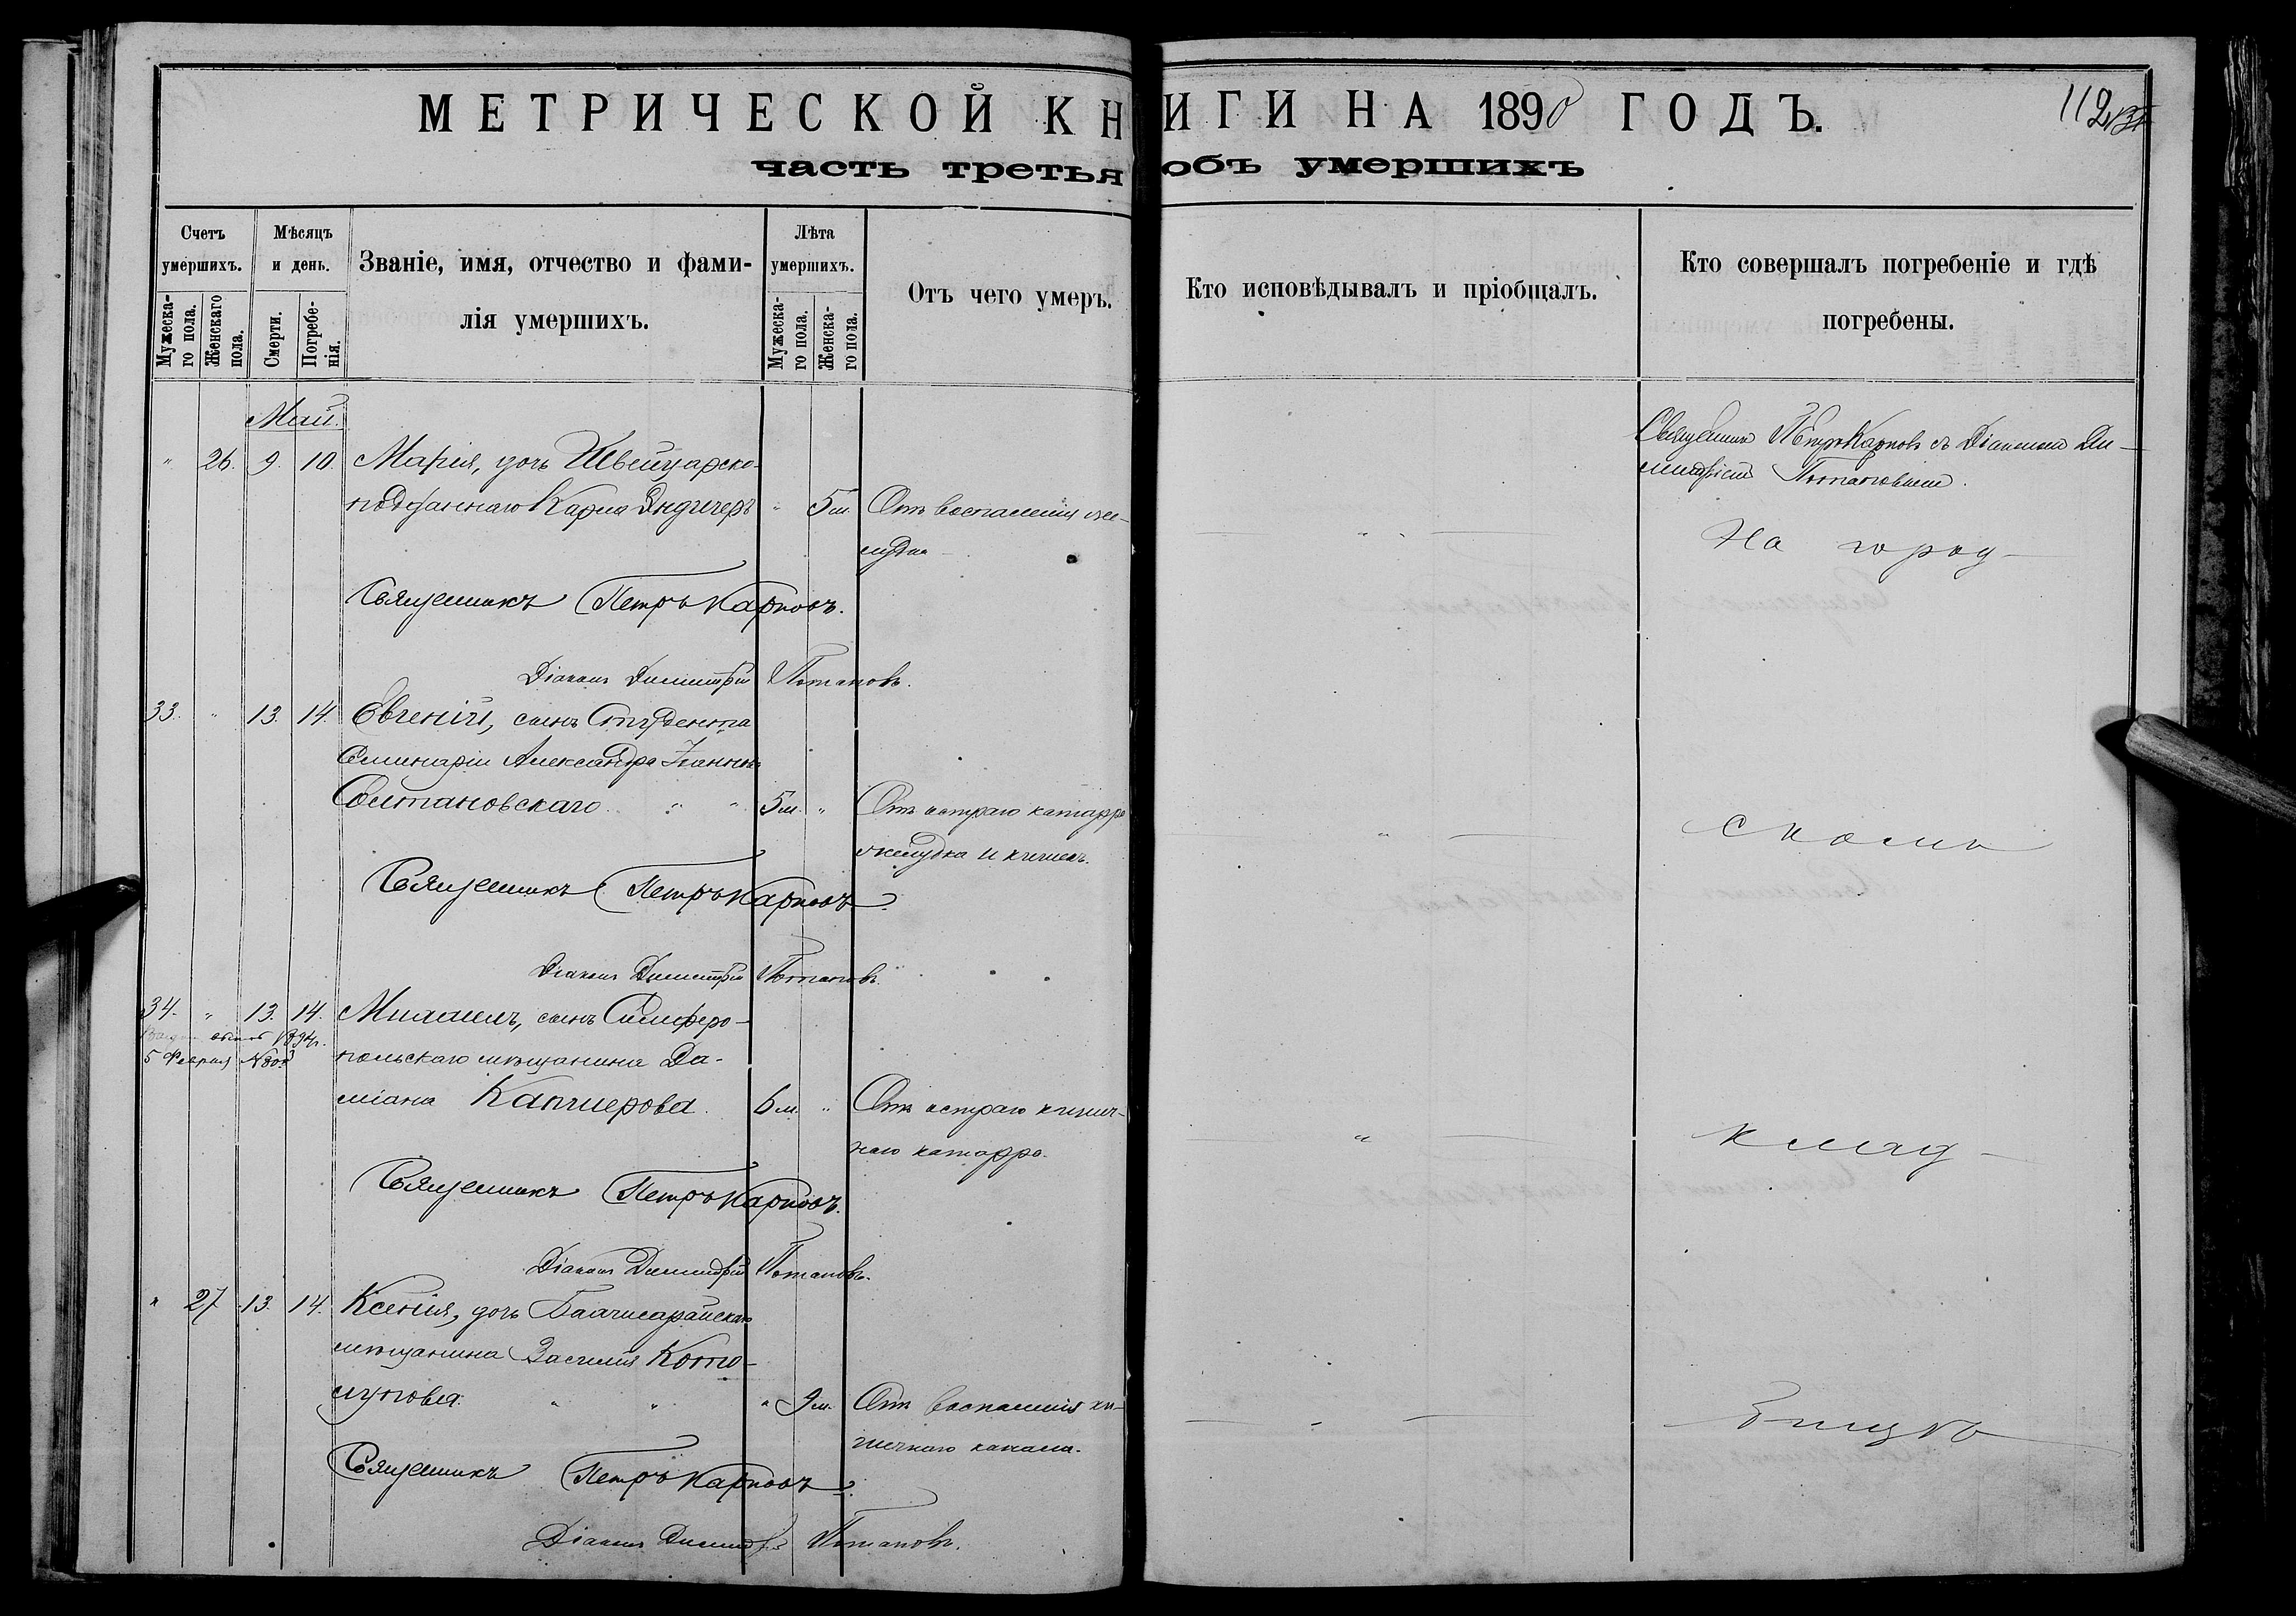 МЕТРИЧЕСКОЙ КНИГИ НА 1890 ГОДЪ.
112
часть третья объ умершихъ
Счетъ умершихъ.
Мужеска-го пола.
Женскаго пола.
Мѣсяцъ и день.
Смерти.
Погребе-нія.
Званіе, имя, отчество и фами-
лія умершихъ.
Лѣта умершихъ.
Мужеска-го пола.
Женска-го пола.
Отъ чего умеръ.
Кто исповѣдывалъ и пріобщалъ.
Кто совершалъ погребеніе и гдѣ
погребены.
Май.
" 26. 9. 10. Марія, дочь Швейцарско-
подданнаго Карла Эндинеръ " 5 м. Отъ воспаленія же-
лудка
Священникъ Петръ Карповъ съ Діакономъ Ди-
митріемъ Потаповымъ.
На город-
Священникъ Петръ Карповъ.
Діаконъ Димитрій Потаповъ.
33. " 13. 14. Евгеній, сынъ Студента
Семинаріи Александра Іоаннова
Солтановскаго. " " 5 м. " Отъ остраго катарра
желудка и кишекъ.
скомъ
Священникъ Петръ Карповъ.
Діаконъ Димитрій Потаповъ.
34. " 13. 14. Михаилъ, сынъ Симферо-
5 Февраля
польскаго мѣщанина Да-
міана Капчиерова. 6 м. " Отъ остраго кишеч-
наго катарра.
клад-
Священникъ Петръ Карповъ.
Діаконъ Димитрій Потаповъ.
" 27 13. 14. Ксенія, дочь Бахчисарайскаго
мѣщанина Василія Кото-
лупова. " " " 9 м. Отъ воспаленія ки-
шечнаго канала.
бищѣ
Священникъ Петръ Карповъ.
Діаконъ Димитрій Потаповъ.